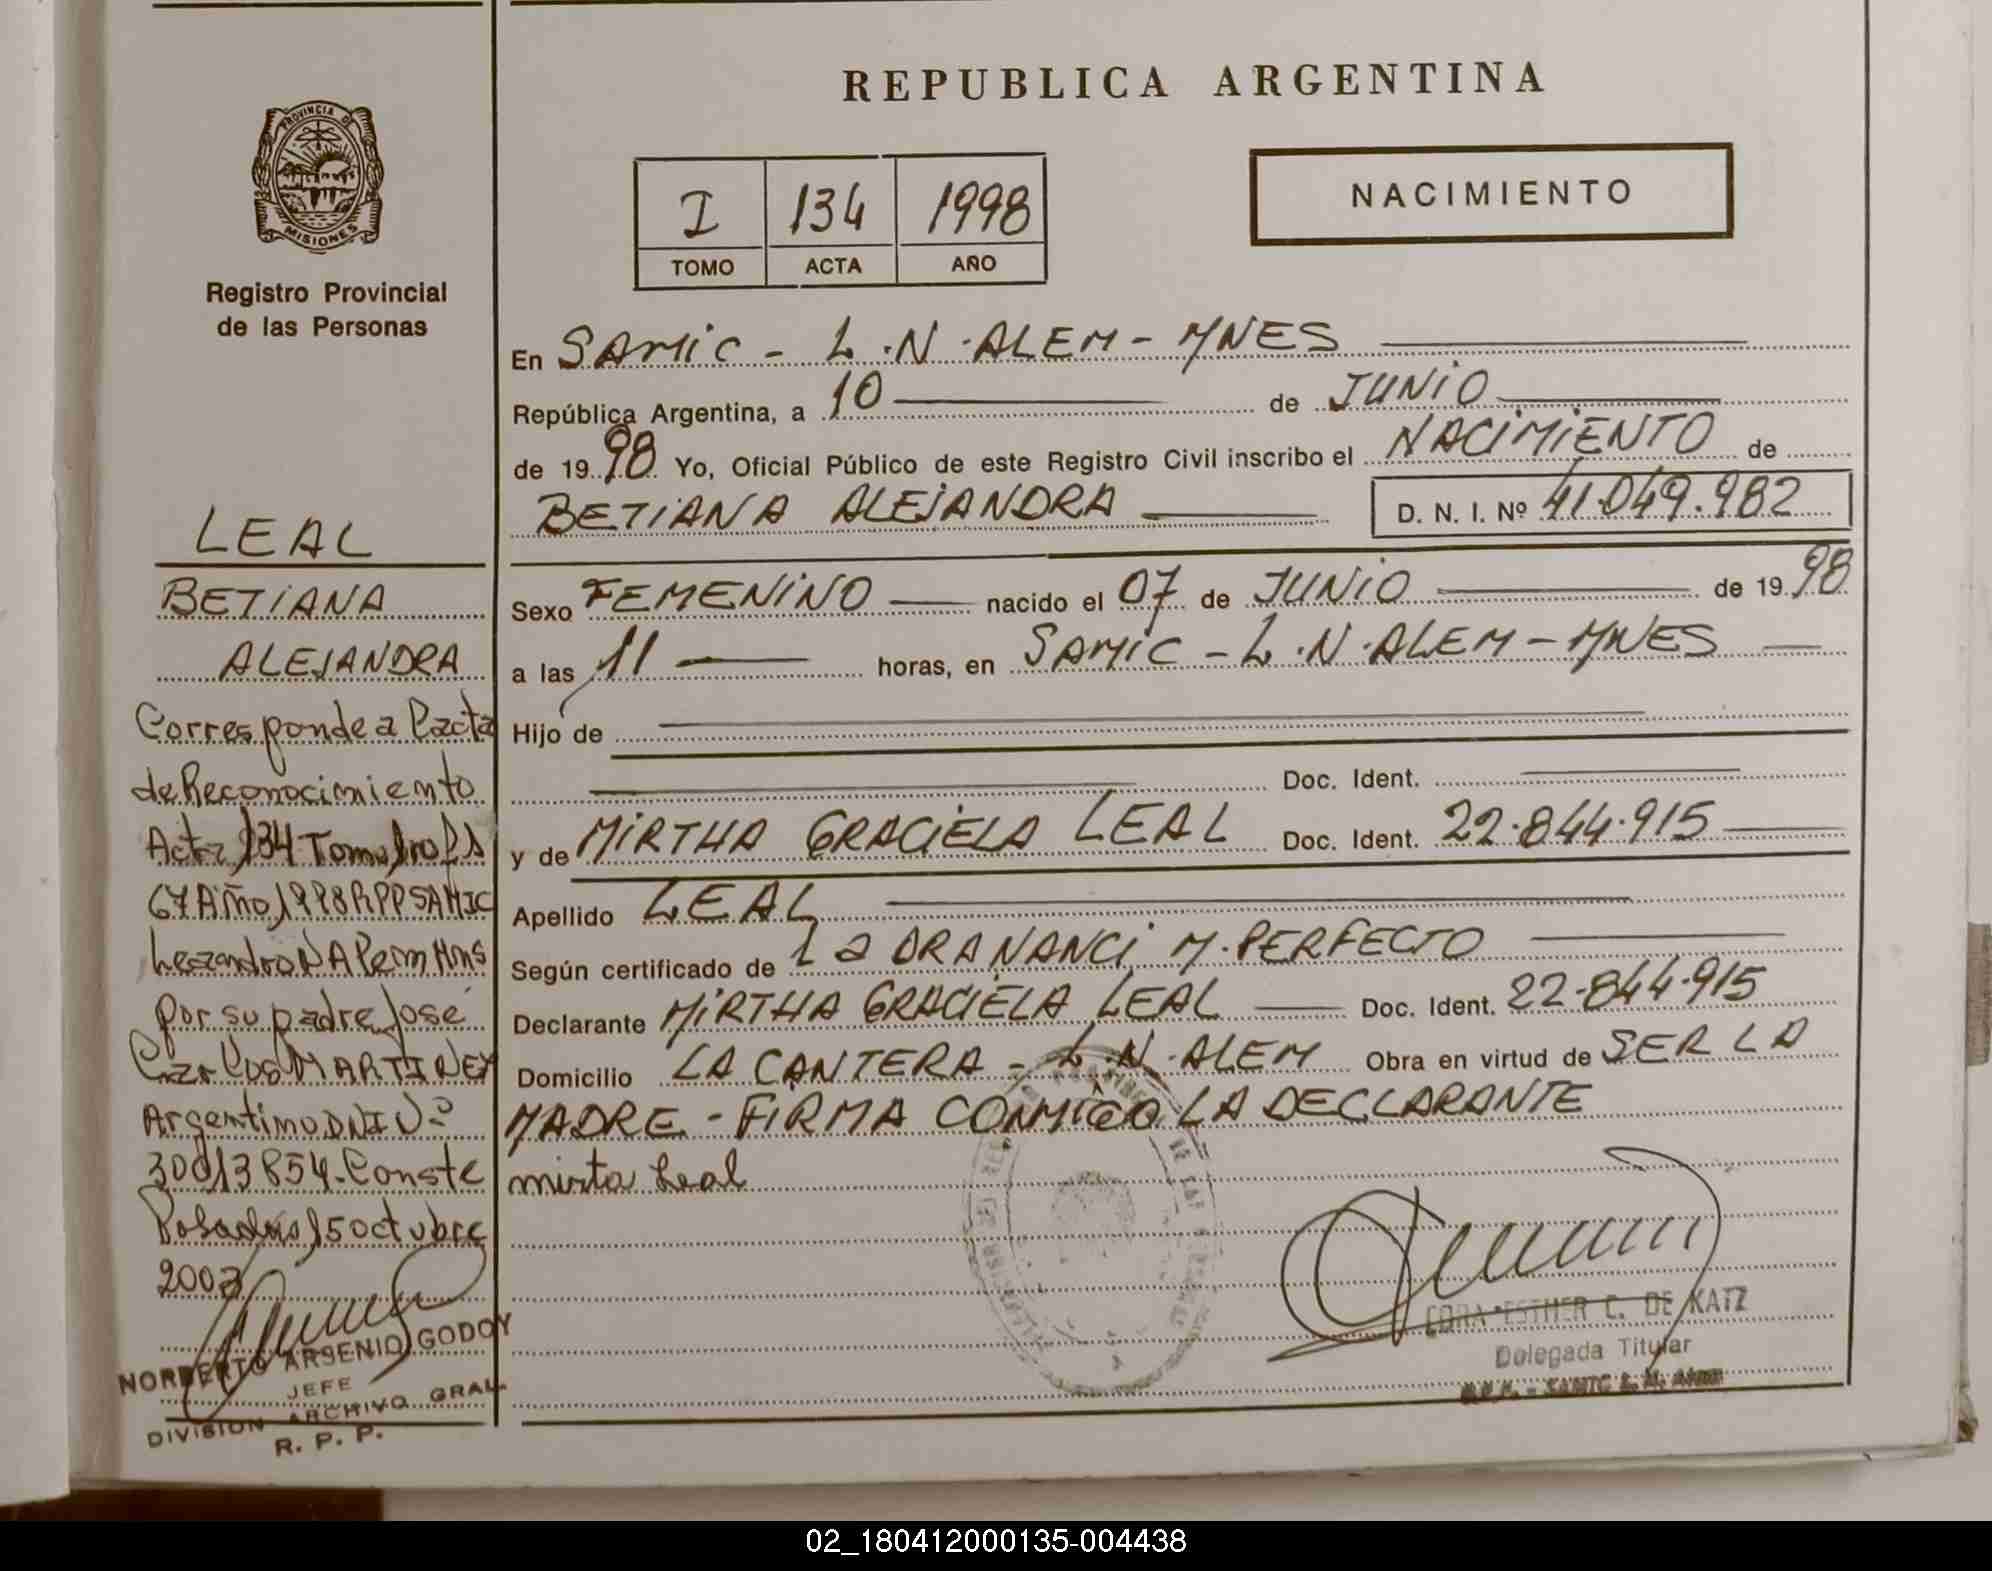 REPUBLICA ARGENTINA
PROVINCIA DE
MISIONES
Registro Provincial
de las Personas
I 134 1998
TOMO ACTA AÑO
NACIMIENTO
En SAMIC - L.N.ALEM - MNES
República Argentina, a 10 de JUNIO
de 1998 Yo, Oficial Público de este Registro Civil inscribo el NACIMIENTO de
BETIANA ALEJANDRA D. N. I. Nº 41.049.982
Sexo FEMENINO nacido el 07 de JUNIO de 1998
a las 11 horas, en SAMIC - L.N.ALEM - MNES
Hijo de
Doc. Ident.
y de MIRTHA GRACIELA LEAL Doc. Ident. 22.844.915
Apellido LEAL
Según certificado de La DRA NANCI M. PERFECTO
Declarante MIRTHA GRACIELA LEAL Doc. Ident. 22.844.915
Domicilio LA CANTERA - L.N.ALEM Obra en virtud de SER LA
MADRE - FIRMA CONMIGO LA DECLARANTE
mirta Leal
CORA ESTHER C. DE KATZ
Delegada Titular
R.P.P. - SAMIC L. N. Alem
LEAL
BETIANA
ALEJANDRA
Corresponde a l'acta
de Reconocimiento
Acta 134 Tomo 1ro Fs
67 Año 1998 RPP SAMIC
Leandro N Alem Mns
por su padre José
Carlos MARTINEZ
Argentino DNI Nº
30013854. Conste
Posadas 15 octubre
2003
NORBERTO ARSENIO GODOY
JEFE
DIVISION ARCHIVO GRAL.
R. P. P.
02_180412000135-004438